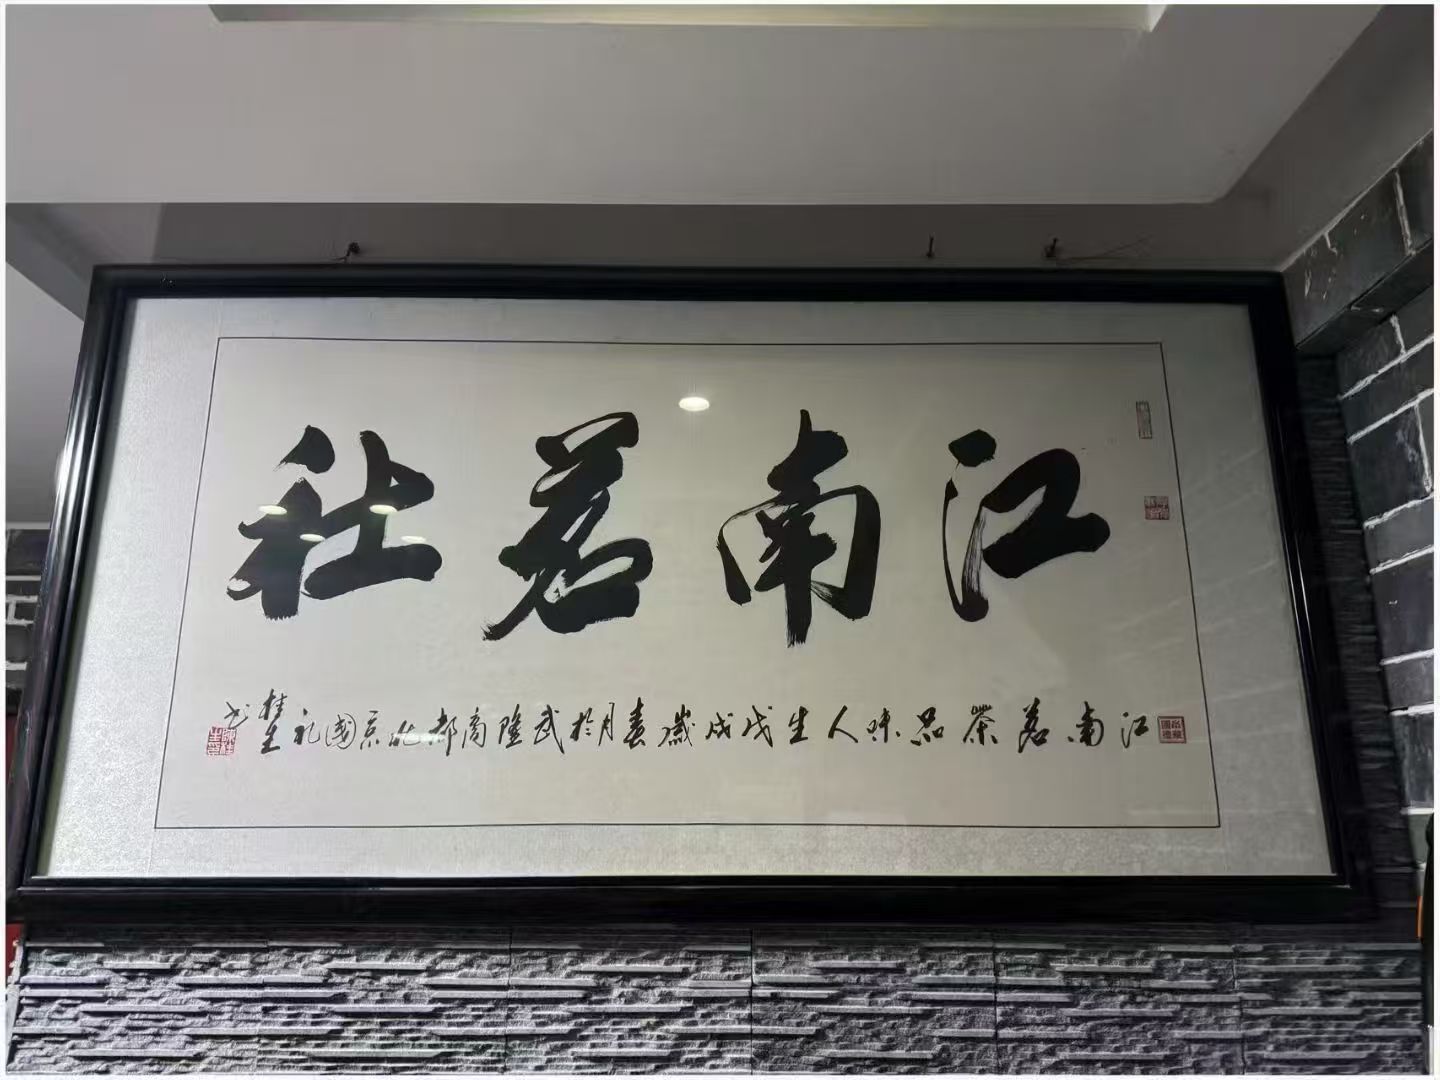 江南茗社
江南茗茶品味人生戊戌歲春月於武陵商都北京國礼桂生书